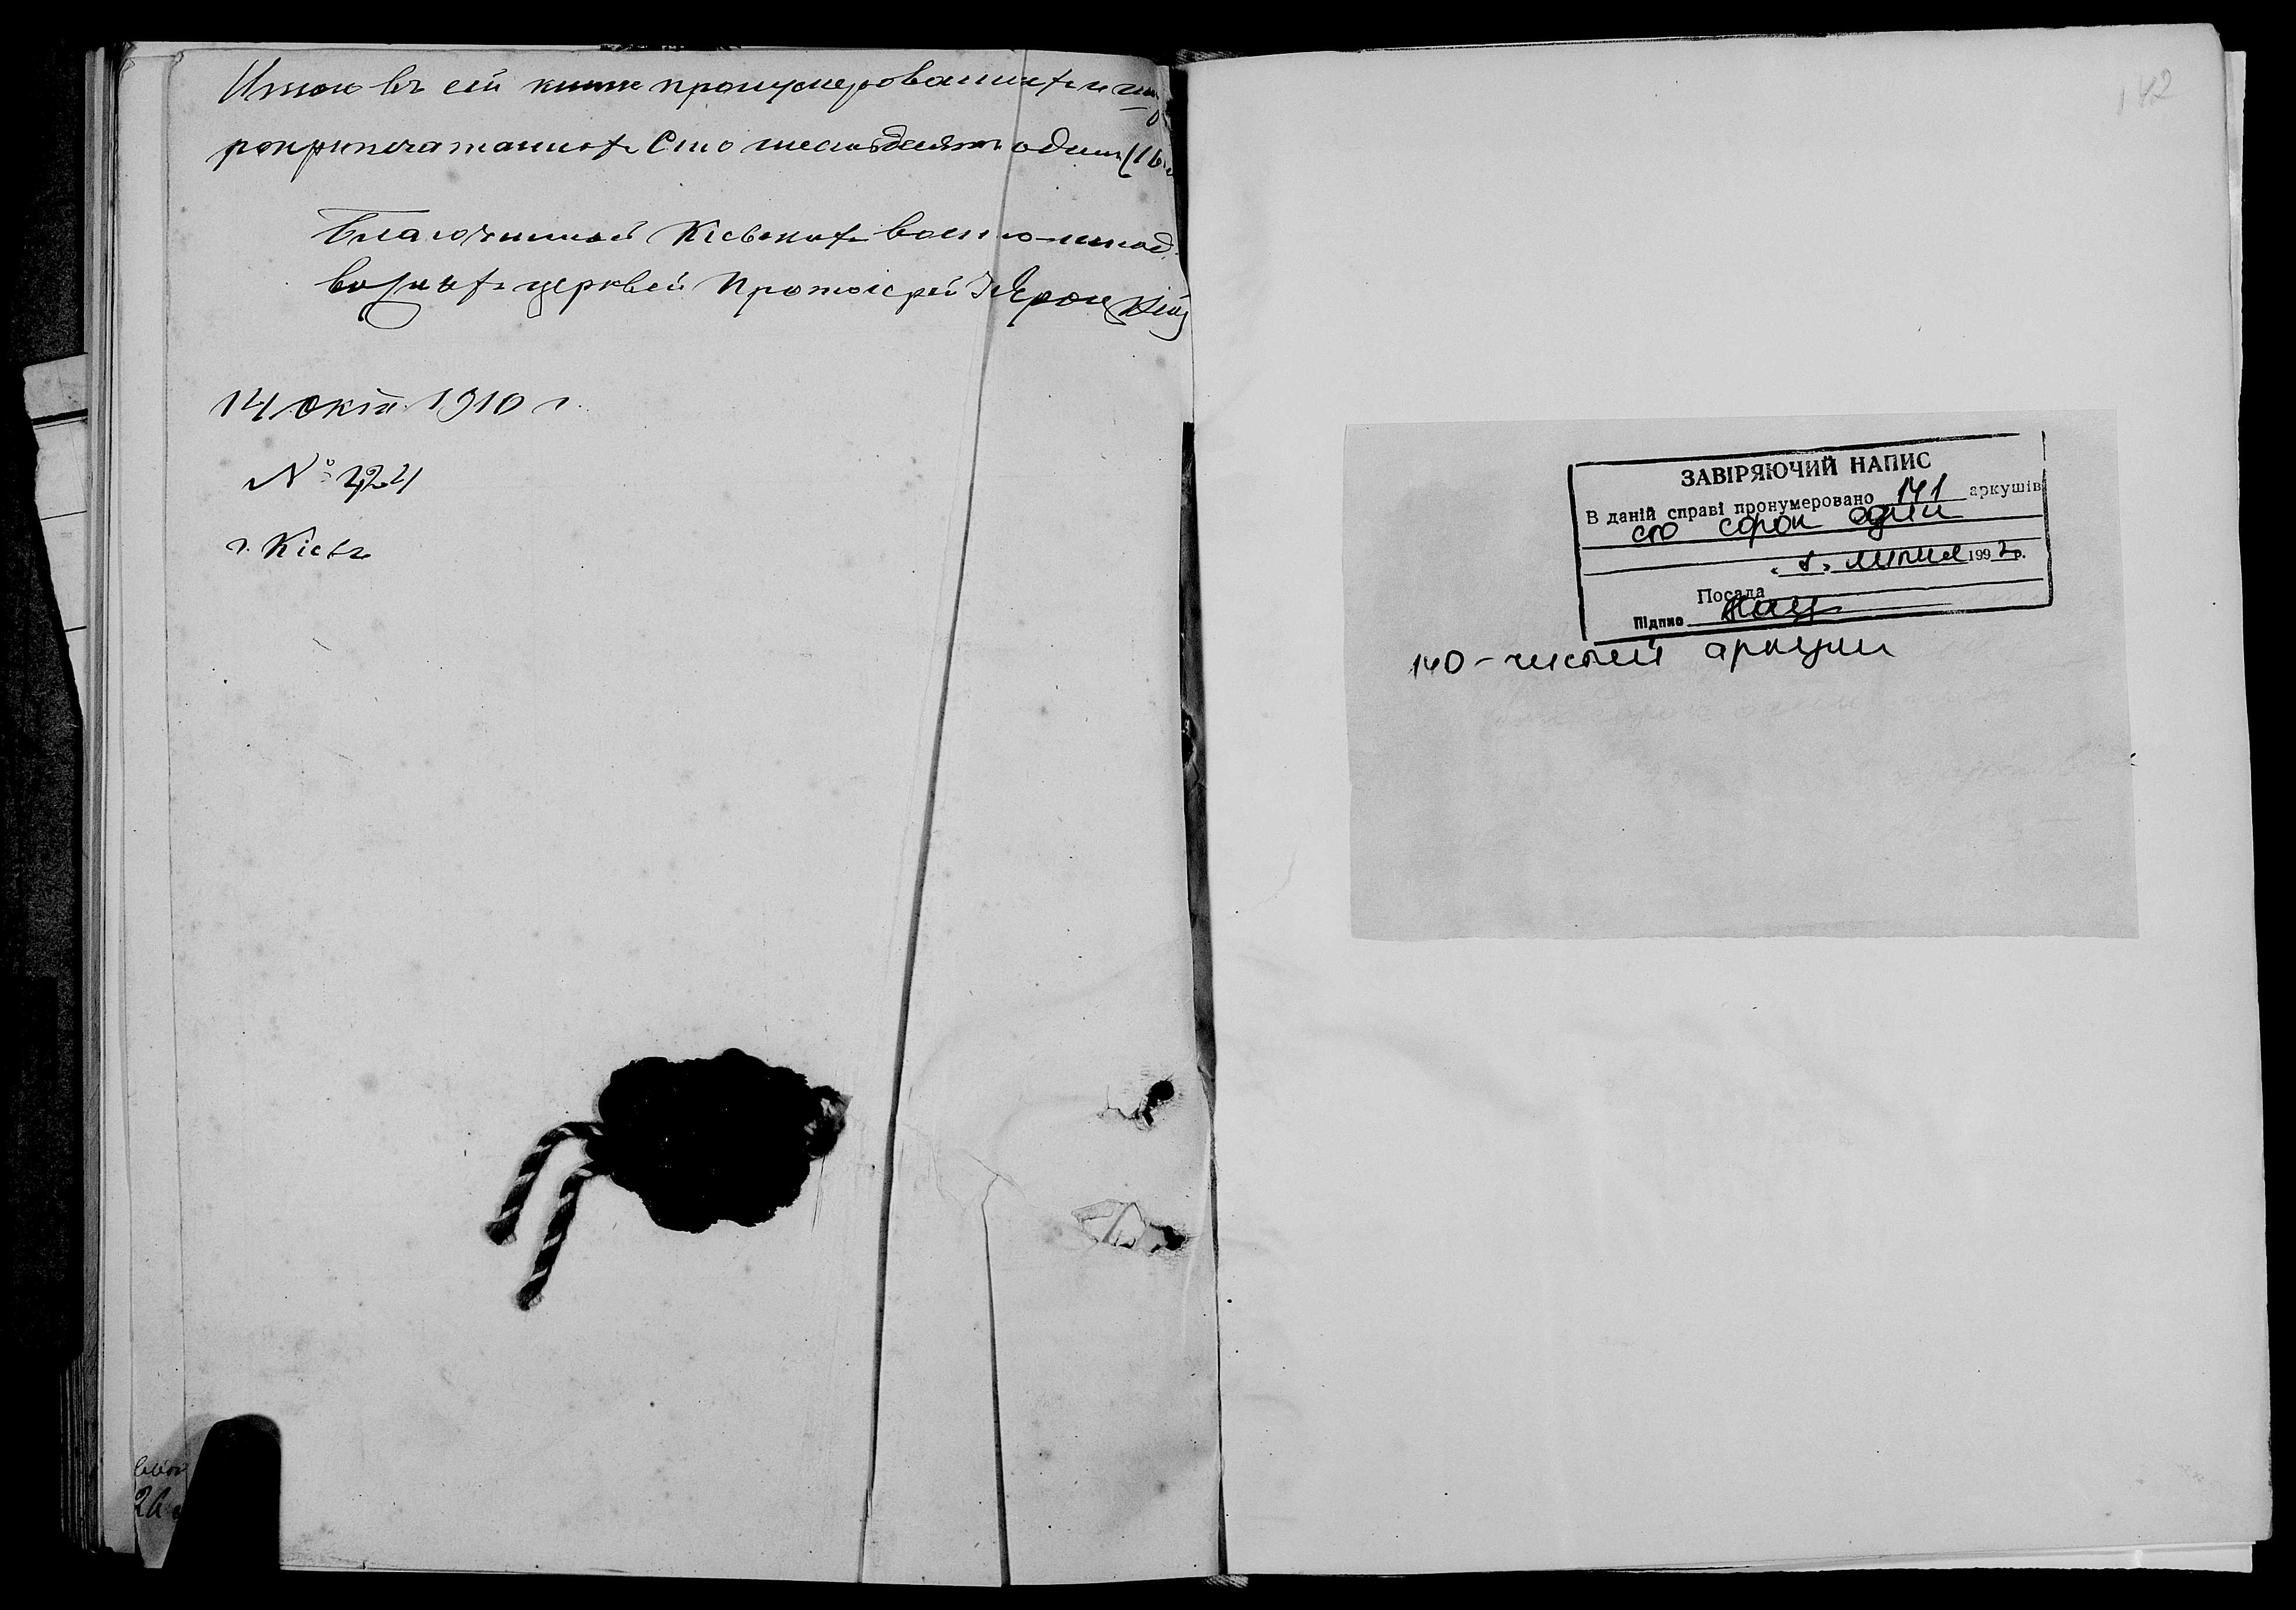 Итого въ сей книге пронумерованныхъ и шну
роприпечатанныхъ Сто шестьдесятъ одинъ (16
Благочинный Кіевскихъ военно-епод
вѣдныхъ церквей Протоіерей Троицкій
14 окт. 1910 г.
№ 424
г. Кіевъ
142
ЗАВІРЯЮЧИЙ НАПИС
В даній справі пронумеровано 141 аркушів
сто сорок один
"1" липня 1992 р.
Посада
Підпис
140 - чистий аркуш
26